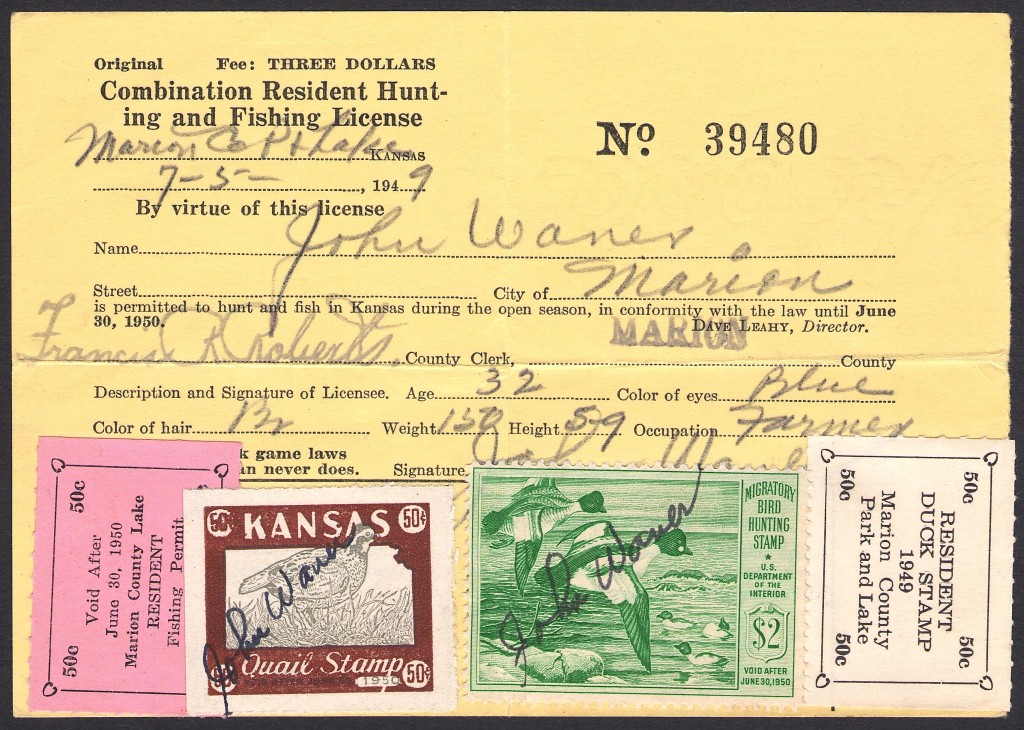 Original Fee: THREE DOLLARS
Combination Resident Hunt-
ing and Fishing License
Marion Co Pk & Lake KANSAS
No. 39480
7-5-, 1949
By virtue of this license
Name John Waner
Street City of Marion
is permitted to hunt and fish in Kansas during the open season, in conformity with the law until June
30, 1950. DAVE LEAHY, Director.
Francis R. Roberts, County Clerk, MARION County
Description and Signature of Licensee. Age 32 Color of eyes Blue
Color of hair Br Weight 150 Height 5-9 Occupation Farmer
k game laws
an never does. Signature John Waner
50c 50c
Void After
June 30, 1950
Marion County Lake
RESIDENT
Fishing Permit
50¢ KANSAS 50¢
John Waner
Quail Stamp
50¢ VOID AFTER JUNE 30, 1950 50¢
MIGRATORY
BIRD
HUNTING
STAMP
U.S.
DEPARTMENT
OF THE
INTERIOR
$2
VOID AFTER
JUNE 30, 1950
John Waner
50c 50c
RESIDENT
DUCK STAMP
1949
Marion County
Park and Lake
50c 50c